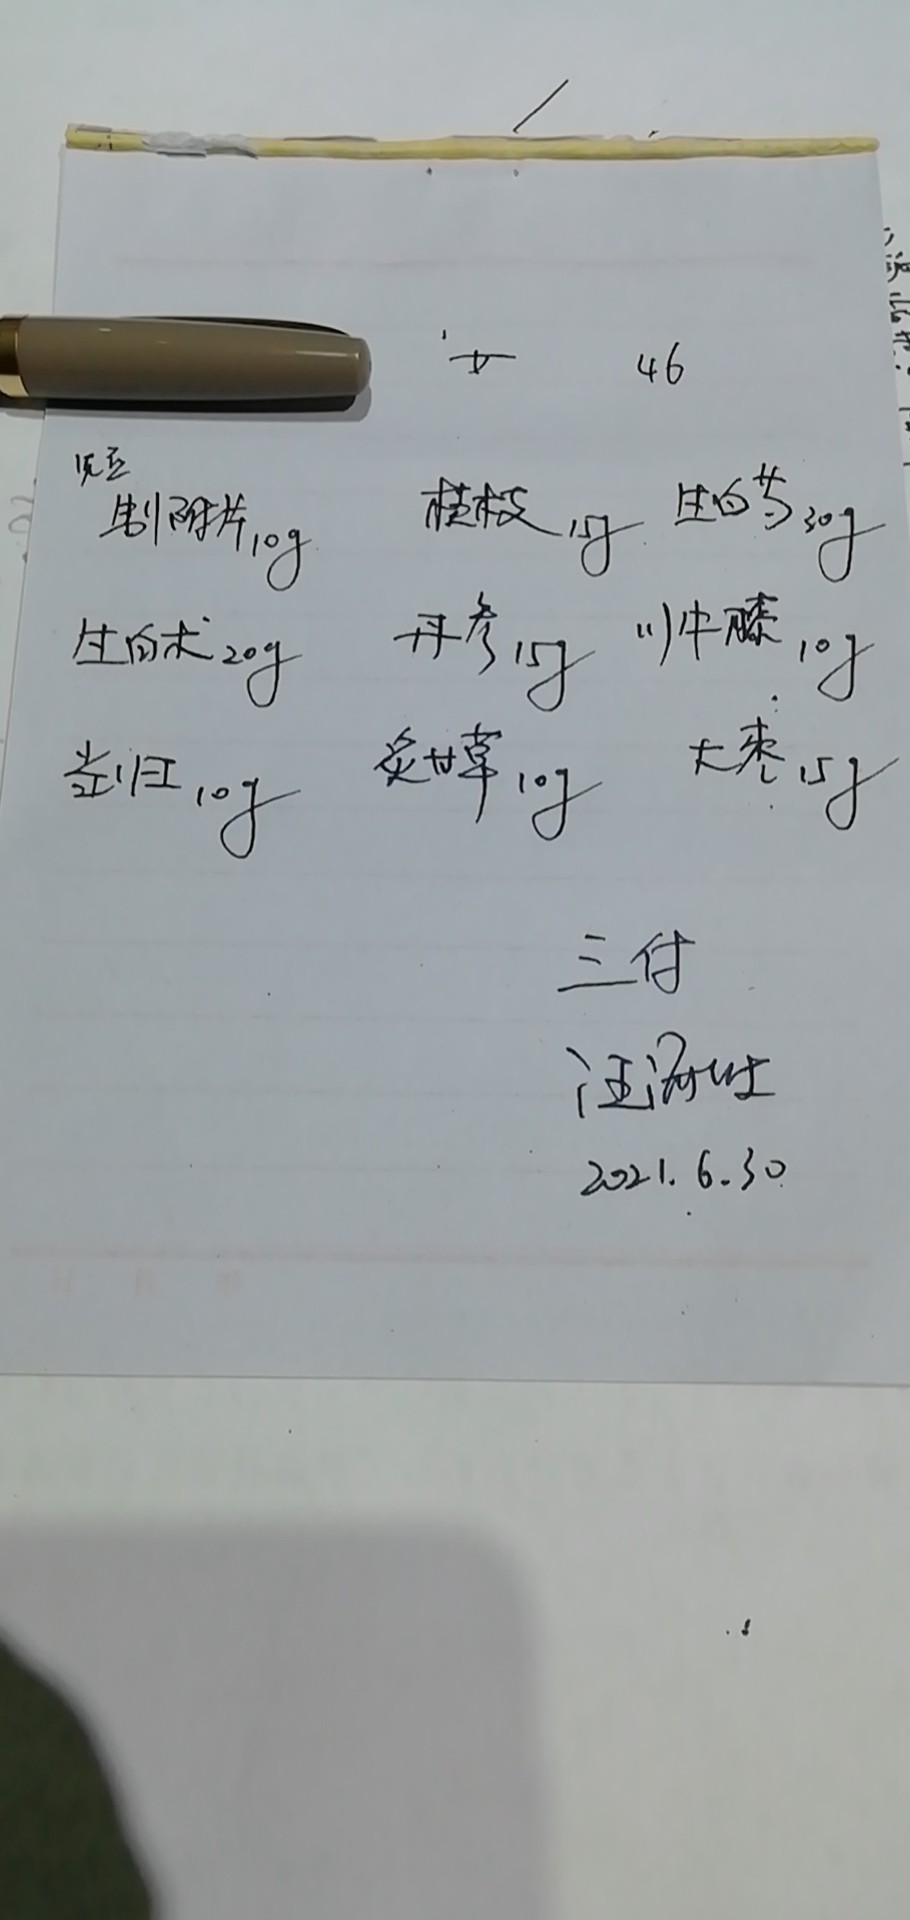 女 46
先煎
制附片10g 桂枝15g 生白芍30g
生白术20g 丹参15g 川牛膝10g
当归10g 炙甘草10g 大枣15g
三付
2021.6.30